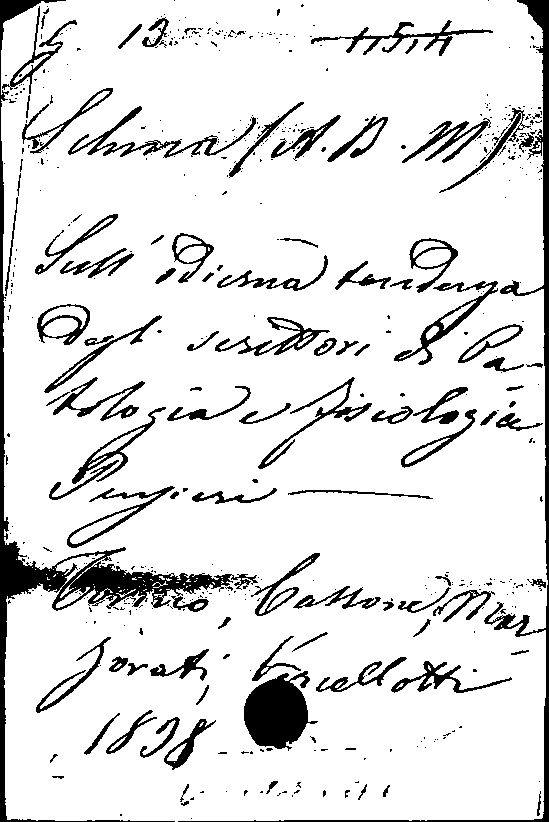 G. 13 1154
Schina (A. B. M)
Sull' odierna tendenza
degli scrittori di Pa-
tologia e fisiologia
Pensieri —
Torino, Cassone, Mar-
zorati, Vercellotti
1838